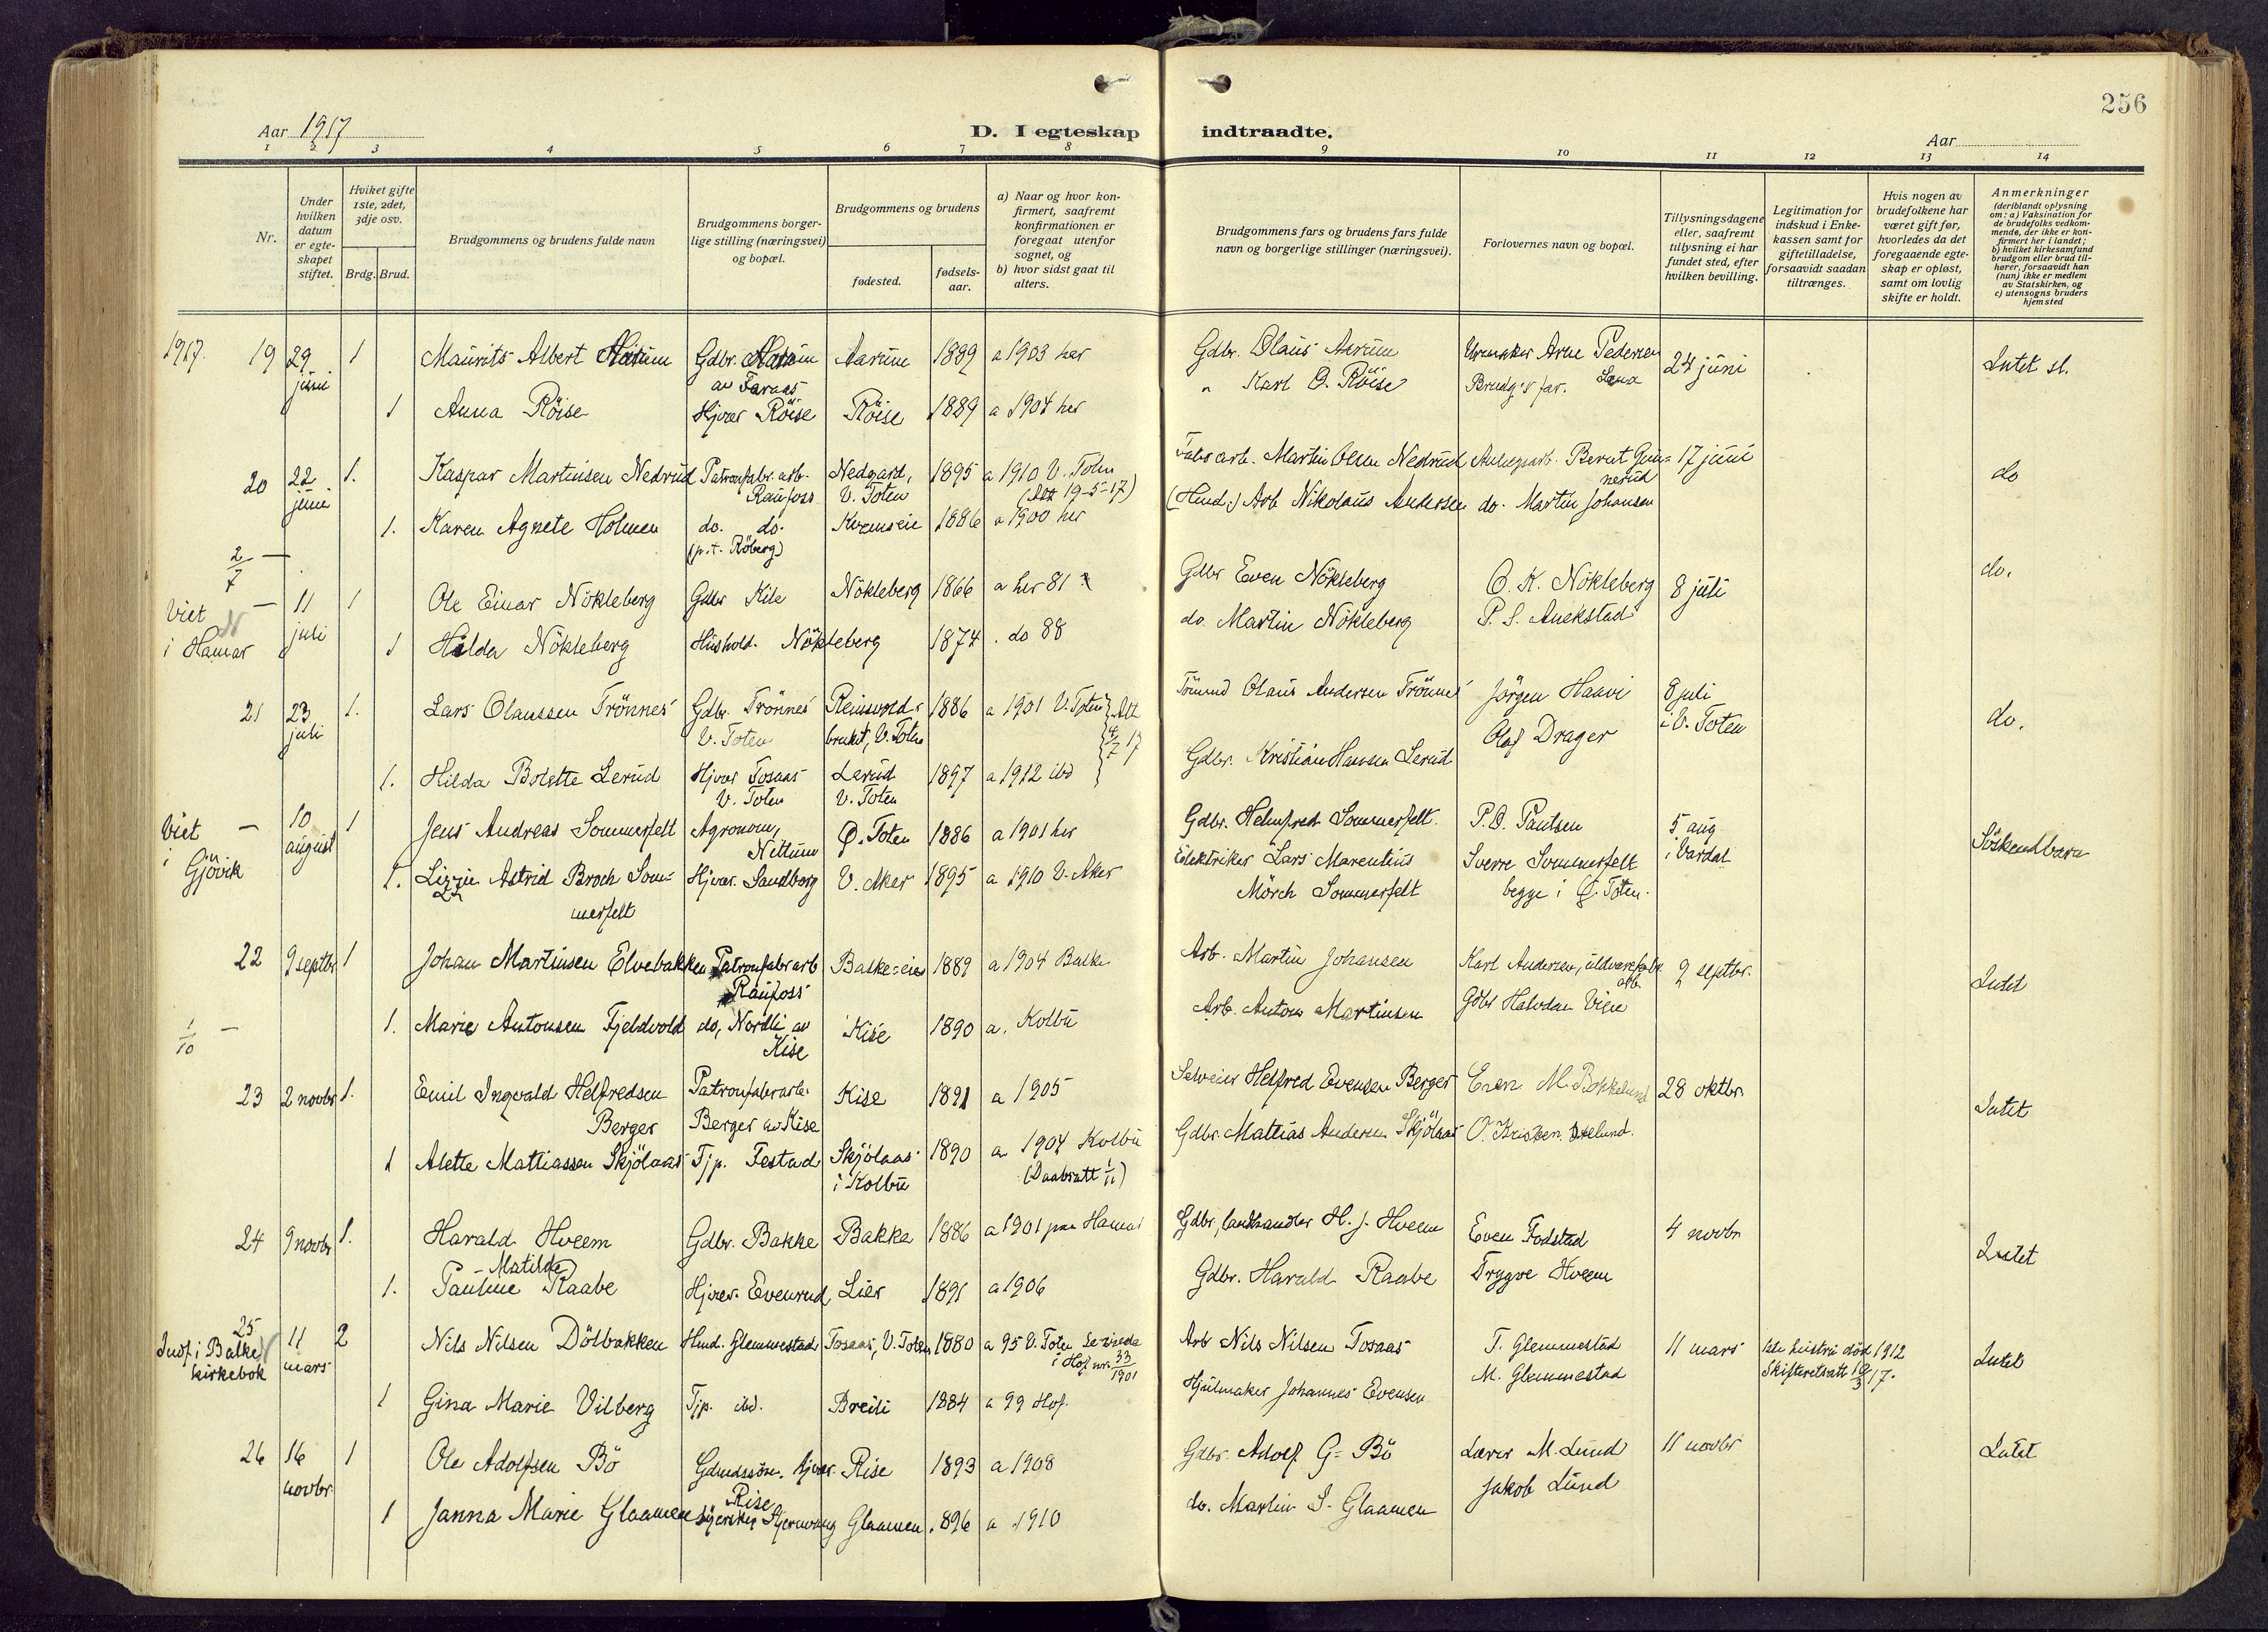 256
Aar 1917
D. I egteskap indtraadte.
Aar
1 2 3 4 5 6 7 8 9 10 11 12 13 14
Nr.
Under hvilken datum er egteskapet stiftet.
Hvilket gifte 1ste, 2det, 3dje osv.
Brdg. Brud.
Brudgommens og brudens fulde navn
Brudgommens borgerlige stilling (næringsvei) og bopæl.
Brudgommens og brudens
fødested.
fødselsaar.
a) Naar og hvor konfirmert, saafremt konfirmationen er foregaat utenfor sognet, og
b) hvor sidst gaat til alters.
Brudgommens fars og brudens fars fulde navn og borgerlige stillinger (næringsvei).
Forlovernes navn og bopæl.
Tillysningsdagene eller, saafremt tillysning ei har fundet sted, efter hvilken bevilling.
Legitimation for indskud i Enkekassen samt for giftetilladelse, forsaavidt saadan tiltrænges.
Hvis nogen av brudefolkene har været gift før, hvorledes da det foregaaende egteskap er opløst, samt om lovlig skifte er holdt.
Anmerkninger
(deriblandt oplysning om: a) Vaksination for de brudefolks vedkommende, der ikke er konfirmert her i landet; b) hvilket kirkesamfund brudgom eller brud tilhører, forsaavidt han (hun) ikke er medlem av Statskirken, og c) utensogns bruders hjemsted
1917. 19 29 juni 1 Maurits Albert Aarum Gdbr. Aarum av Faraas Aarum 1889 a 1903 her Gdbr. Olaus Aarum Urmaker Arne Pedersen Lena 24 juni Intet sl.
1 Anna Röise Hjvær Röise Röise 1889 a 1904 her " Karl O. Röise Brudg's far.
20 22 juni 1. Kaspar Martinsen Nedrud Patronfabr. arb. Raufoss Nedgard, V. Toten 1895 a 1910 V. Toten (Att 19-5-17) Fabr arb. Martin Olsen Nedrud Anlegsarb. Bernt Gunnerud 17 juni do
1. Karen Agnete Holmen do. do. (p.t. Röberg) Kvemseie 1886 a 1900 her (Hmd.) Arb Nikolaus Andersen do. Martin Johansen
2/7 —
Viet i Hamar — 11 juli 1 Ole Einar Nökleberg Gdbr Kile Nökleberg 1866 a her 81 Gdbr Even Nökleberg O. K. Nökleberg 8 juli do.
1 Hilda Nökleberg Hushold. Nökleberg 1874 . do 88 do. Martin Nökleberg P. S. Anekstad
21 23 juli 1. Lars Olaussen Trönnes Gdbr. Trönnes V. Toten Reinsvoldsbruket, V. Toten 1886 a 1901 V. Toten Att 4/7 17 Olaus Andersen Trönnes Jörgen Haavi 8 juli i V. Toten do.
1. Hilda Bolette Lerud Hjvær Tosaas V. Toten Lerud V. Toten 1897 a 1912 ibd Gdbr. Kristian Hansen Lerud Olaf Drager
Viet i Gjövik — 10 august 1 Jens Andreas Sommerfelt Agronom, Nettum Ø. Toten 1886 a 1901 her Gdbr. Helmfred Sommerfelt. P. O. Paulsen 5 aug i Vardal Söskendbarn
1. Lizzie Astrid Broch Sommerfelt Hjvær. Sandborg V. Aker 1895 a 1910 V. Aker Elektriker Lars Marentius Mörch Sommerfelt Sverre Sommerfelt begge i Ø. Toten.
22 9 septbr 1 Johan Martinsen Elvebakken Patronfabr arb Raufoss Balke-eie 1889 a 1904 Balke Arb. Martin Johansen Karl Andersen, uldvarefabr. arb. 2 septbr. Intet
1/10 — 1. Marie Antonsen Fjeldvold do, Nordli av Kise Kise 1890 a. Kolbu Arb. Anton Martinsen Gdbr Halvdan Vien
23 2 novbr 1. Emil Ingvald Helfredsen Berger Patronfabrarb. Berger av Kise Kise 1891 a 1905 Selveier Helfred Evensen Berger Even M. Bakkelund 28 oktbr. Intet
1 Alette Mattiassen Skjölaas Tjp. Festad Skjölaas i Kolbu 1890 a 1904 Kolbu (Daabsatt 1/11) Gdbr. Mattias Andersen Skjölaas O. Kristen.
24 9 novbr 1. Harald Hveem Gdbr. Bakke Bakke 1886 a 1901 paa Hamar Gdbr, landhandler H. J. Hveem Even Fodstad 4 novbr Intet
1. Pauline Matilde Raabe Hjvær. Evenrud Lier 1891 a 1906 Gdbr. Harald Raabe Trygve Hveem
Indf. i Balke kirkebok 25 11 mars 2 Nils Nilsen Dölbakken Hmd. Glemmestad Tosaas, V. Toten 1880 a 95 V. Toten i Hof nr. 33/1901 Arb Nils Nilsen Tosaas T. Glemmestad 11 mars 1ste hustru död 1912 Skifteretsatt 10/3 17. Intet
1 Gina Marie Vilberg Tjp. ibd. Breili 1884 a 99 Hof. Hjulmaker Johannes Evensen M. Glemmestad
26 16 novbr. 1 Ole Adolfsen Bö Gdmdssön. hjvær. Rise Rise 1893 a 1908 Gdbr. Adolf G. Bö Lærer M. Lund 11 novbr Intet
1 Janna Marie Glaamen Glaamen 1896 a 1910 do. Martin S. Glaamen Jakob Lund